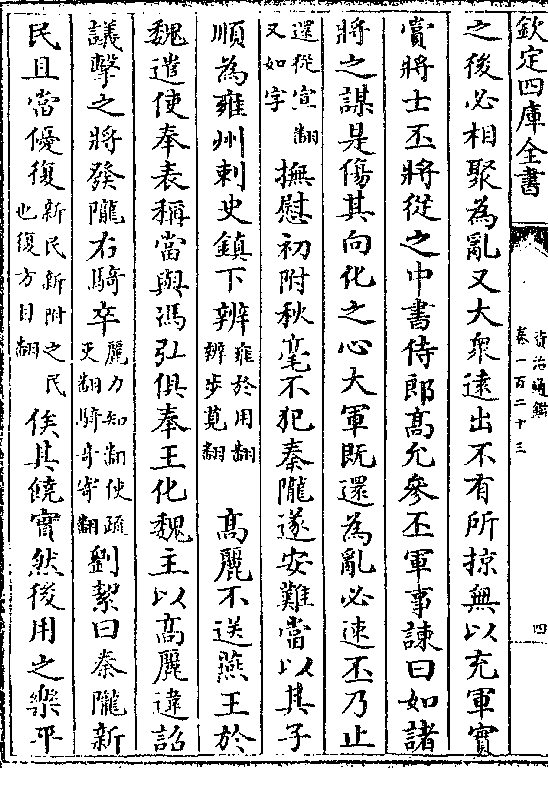 欽定四庫全書
資治通鑑
卷一百二十三
四
之後必相聚為亂又大衆逺出不有所掠無以充軍實
賞將士丕將從之中書侍郎髙允參丕軍事諫曰如諸
將之謀是傷其向化之心大軍既還為亂必速丕乃止
還從宣翻
又如字
撫慰初附秋毫不犯秦隴遂安難當以其子
順為雍州刺史鎮下辨
雍於用翻
辨步莧翻
髙麗不送燕王於
魏遣使奉表稱當與馮弘俱奉王化魏主以髙麗違詔
議擊之將發隴右騎卒
麗力知翻使疏
吏翻騎奇寄翻
劉絜曰秦隴新
民且當優復
新民新附之民
也復方目翻
俟其饒實然後用之樂平